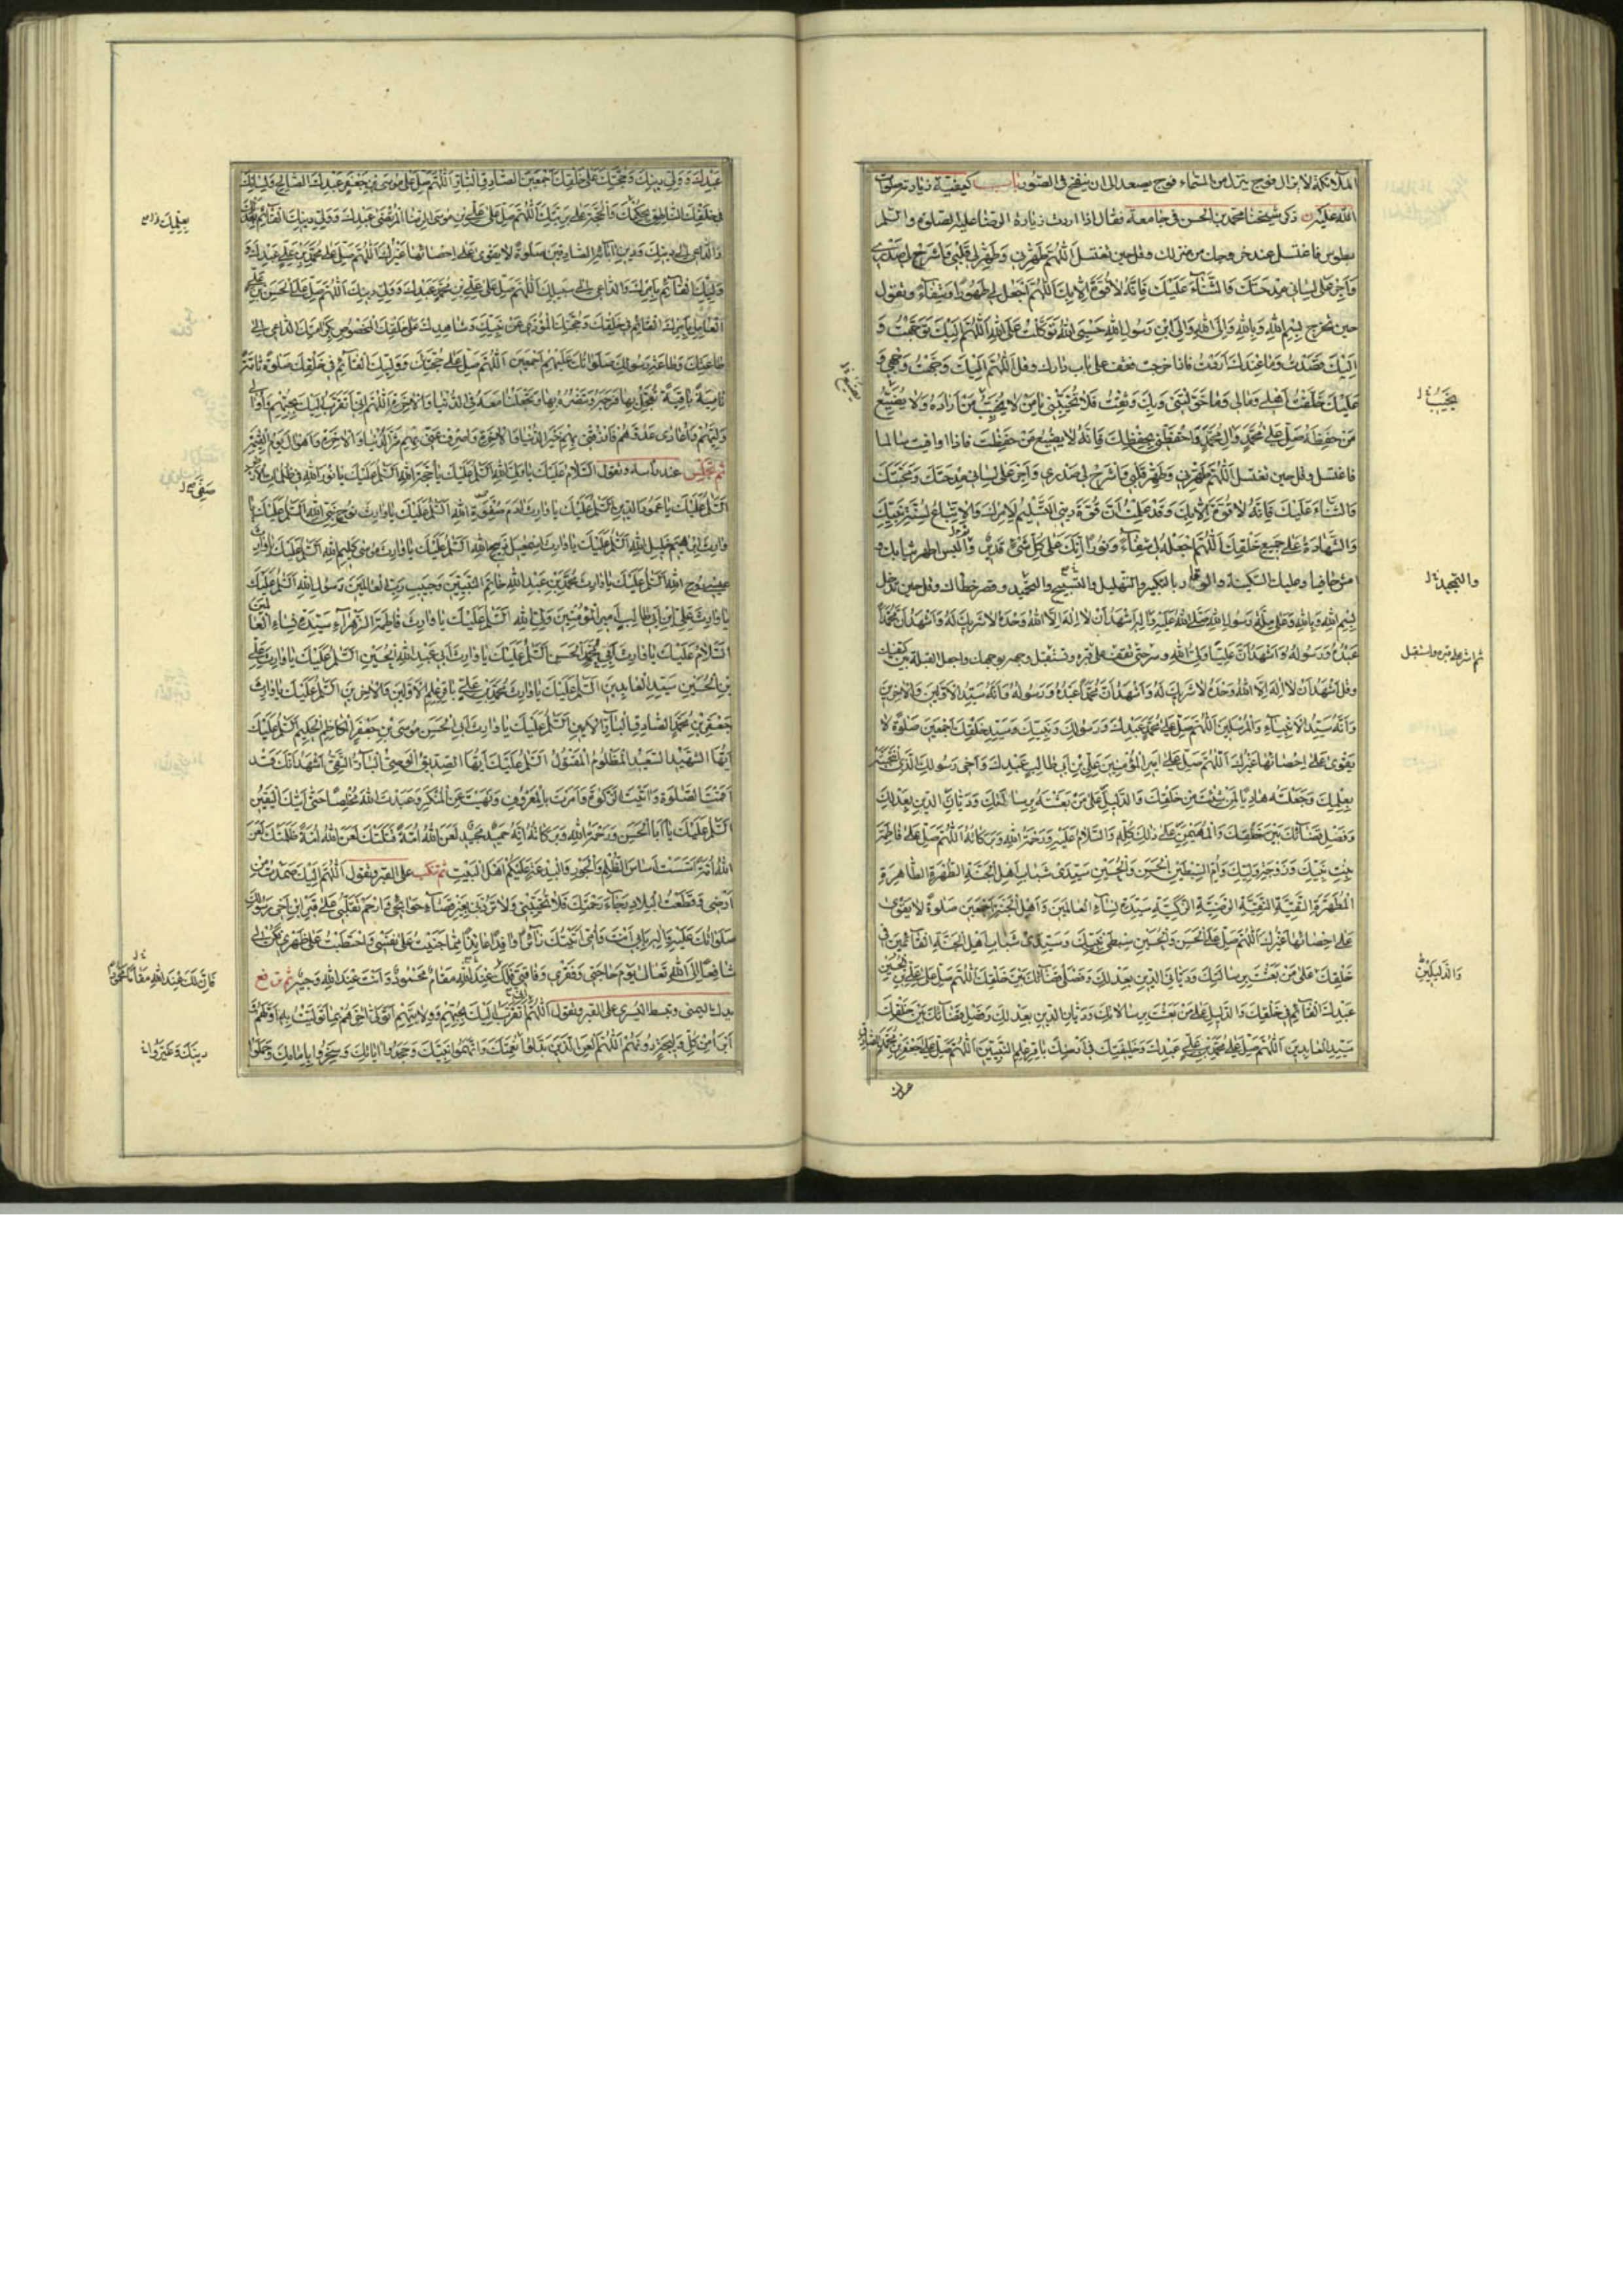 الملائكة لا يزال فوج ينزل من السماء و فوج يصعد الى ان ينفخ فى الصور باب كيفية زيارته صلوات
الله عليه ذكر شيخنا محمد بن الحسن فى جامعه فقال اذا اردت زيارة الرضا عليه الصلوة والسلم
بطوس فاغتسل عند خروجك من منزلك و قل حين تغتسل اَللّٰهُمَّ طَهِّرْنى وَطَهِّرْ لى قَلْبى وَاشْرَحْ لى صَدْرى
وَاَجْرِ عَلى لِسانى مِدْحَتَكَ وَالثَّنآءَ عَلَيْكَ فَاِنَّهُ لا قُوَّةَ اِلّا بِكَ اَللّٰهُمَّ اجْعَلْهُ لى طَهُورًا وَشِفآءً و تقول
حين تخرج بِسْمِ اللهِ وَبِاللهِ وَاِلَى اللهِ وَاِلَى ابْنِ رَسُولِ اللهِ حَسْبِىَ اللهُ تَوَكَّلْتُ عَلَى اللهِ اَللّٰهُمَّ اِلَيْكَ تَوَجَّهْتُ وَ
اِلَيْكَ قَصَدْتُ وَما عِنْدَكَ اَرَدْتُ فاذا خرجت فقف على باب دارك و قل اَللّٰهُمَّ اِلَيْكَ وَجَّهْتُ وَجْهى وَ
عَلَيْكَ خَلَّفْتُ اَهْلى وَمالى وَما خَوَّلْتَنى وَبِكَ وَثِقْتُ فَلا تُخَيِّبْنى يا مَنْ لا يُخَيِّبُ مَنْ اَرادَهُ وَلا يُضَيِّعُ
مَنْ حَفِظَهُ صَلِّ عَلى مُحَمَّدٍ وَالِ مُحَمَّدٍ وَاحْفَظْنى بِحِفْظِكَ فَاِنَّهُ لا يَضيعُ مَنْ حَفِظْتَ فاذا وافيت سالما
فاغتسل و قل حين تغتسل اَللّٰهُمَّ طَهِّرْنى وَطَهِّرْ قَلْبى وَاشْرَحْ لى صَدْرى وَاَجْرِ عَلى لِسانى مِدْحَتَكَ وَمَحَبَّتَكَ
وَالثَّنآءَ عَلَيْكَ فَاِنَّهُ لا قُوَّةَ اِلّا بِكَ وَقَدْ عَلِمْتُ اَنَّ قُوَّةَ دينى اَلتَّسْليمُ لِاَمْرِكَ وَالْاِتِّباعُ لِسُنَّةِ نَبِيِّكَ
وَالشَّهادَةُ عَلى جَميعِ خَلْقِكَ اَللّٰهُمَّ اجْعَلْهُ لى شِفآءً وَنُورًا اِنَّكَ عَلى كُلِّ شَىْءٍ قَديرٌ و البس اطهر ثيابك و
امش حافيا و عليك السكينة والوقار بالتكبير والتهليل والتسبيح والتحميد و قصر خطاك و قل حين تدخل
بِسْمِ اللهِ وَبِاللهِ وَعَلى مِلَّةِ رَسُولِ اللهِ صَلَّى اللهُ عَلَيْهِ وَالِهِ اَشْهَدُ اَنْ لا اِلٰهَ اِلَّا اللهُ وَحْدَهُ لا شَريكَ لَهُ وَاَشْهَدُ اَنَّ مُحَمَّدًا
عَبْدُهُ وَرَسُولُهُ وَاَشْهَدُ اَنَّ عَلِيًّا وَلِىُّ اللهِ و سر حتى تقف على قبره و تستقبل وجهه بوجهك واجعل القبلة بين كتفيك
وقل اَشْهَدُ اَنْ لا اِلٰهَ اِلَّا اللهُ وَحْدَهُ لا شَريكَ لَهُ وَاَشْهَدُ اَنَّ مُحَمَّدًا عَبْدُهُ وَرَسُولُهُ وَاَنَّهُ سَيِّدُ الْاَوَّلينَ وَالْاخِرينَ
وَاَنَّهُ سَيِّدُ الْاَنْبِيآءِ وَالْمُرْسَلينَ اَللّٰهُمَّ صَلِّ عَلى مُحَمَّدٍ عَبْدِكَ وَرَسُولِكَ وَنَبِيِّكَ وَسَيِّدِ خَلْقِكَ اَجْمَعينَ صَلٰوةً لا
يَقْوى عَلى اِحْصآئِها غَيْرُكَ اَللّٰهُمَّ صَلِّ عَلى اَميرِ الْمُؤْمِنينَ عَلِىِّ بْنِ اَبى طالِبٍ عَبْدِكَ وَاَخى رَسُولِكَ الَّذى انْتَجَبْتَهُ
بِعِلْمِكَ وَجَعَلْتَهُ هادِيًا لِمَنْ شِئْتَ مِنْ خَلْقِكَ وَالدَّليلَ عَلى مَنْ بَعَثْتَهُ بِرِسالاتِكَ وَدَيّانَ الدّينِ بِعَدْلِكَ
وَفَصْلِ قَضآئِكَ بَيْنَ خَلْقِكَ وَالْمُهَيْمِنَ عَلى ذٰلِكَ كُلِّهِ وَالسَّلامُ عَلَيْهِ وَرَحْمَةُ اللهِ وَبَرَكاتُهُ اَللّٰهُمَّ صَلِّ عَلى فاطِمَةَ
بِنْتِ نَبِيِّكَ وَزَوْجَةِ وَلِيِّكَ وَاُمِّ السِّبْطَيْنِ الْحَسَنِ وَالْحُسَيْنِ سَيِّدَىْ شَبابِ اَهْلِ الْجَنَّةِ الطُّهْرَةِ الطّاهِرَةِ
الْمُطَهَّرَةِ التَّقِيَّةِ النَّقِيَّةِ الرَّضِيَّةِ الزَّكِيَّةِ سَيِّدَةِ نِسآءِ الْعالَمينَ وَاَهْلِ الْجَنَّةِ اَجْمَعينَ صَلٰوةً لا يَقْوى
عَلى اِحْصآئِها غَيْرُكَ اَللّٰهُمَّ صَلِّ عَلَى الْحَسَنِ وَالْحُسَيْنِ سِبْطَىْ نَبِيِّكَ وَسَيِّدَىْ شَبابِ اَهْلِ الْجَنَّةِ الْقآئِمَيْنِ فى
خَلْقِكَ عَلى مَنْ بَعَثْتَ بِرِسالاتِكَ وَدَيّانَىِ الدّينِ بِعَدْلِكَ وَفَصْلَىْ قَضآئِكَ بَيْنَ خَلْقِكَ اَللّٰهُمَّ صَلِّ عَلى عَلِىِّ بْنِ الْحُسَيْنِ
عَبْدِكَ الْقآئِمِ فى خَلْقِكَ وَالدَّليلِ عَلى مَنْ بَعَثْتَ بِرِسالاتِكَ وَدَيّانِ الدّينِ بِعَدْلِكَ وَفَصْلِ قَضآئِكَ بَيْنَ خَلْقِكَ
سَيِّدِ الْعابِدينَ اَللّٰهُمَّ صَلِّ عَلى مُحَمَّدِ بْنِ عَلِىٍّ عَبْدِكَ وَخَليفَتِكَ فى اَرْضِكَ باقِرِ عِلْمِ النَّبِيّينَ اَللّٰهُمَّ صَلِّ عَلى جَعْفَرِ بْنِ مُحَمَّدٍ الصّادِقِ
يُخَيِّبُ
والتمجيد
ثم اشر على قبره واستقبل
وَالدَّليلَيْنِ
عَبْدِكَ وَوَلِىِّ دينِكَ وَحُجَّتِكَ عَلى خَلْقِكَ اَجْمَعينَ الصّادِقِ الْبآرِّ اَللّٰهُمَّ صَلِّ عَلى مُوسَى بْنِ جَعْفَرٍ عَبْدِكَ الصّالِحِ وَلِسانِكَ
فى خَلْقِكَ النّاطِقِ بِحُكْمِكَ وَالْحُجَّةِ عَلى بَرِيَّتِكَ اَللّٰهُمَّ صَلِّ عَلى عَلِىِّ بْنِ مُوسَى الرِّضَا الْمُرْتَضى عَبْدِكَ وَوَلِىِّ دينِكَ الْقآئِمِ بِعَدْلِكَ
وَالدّاعى اِلى دينِكَ وَدينِ ابآئِهِ الصّادِقينَ صَلٰوةً لا يَقْوى عَلى اِحْصآئِها غَيْرُكَ اَللّٰهُمَّ صَلِّ عَلى مُحَمَّدِ بْنِ عَلِىٍّ عَبْدِكَ وَ
وَلِيِّكَ الْقآئِمِ بِاَمْرِكَ وَالدّاعى اِلى سَبيلِكَ اَللّٰهُمَّ صَلِّ عَلى عَلِىِّ بْنِ مُحَمَّدٍ عَبْدِكَ وَوَلِىِّ دينِكَ اَللّٰهُمَّ صَلِّ عَلَى الْحَسَنِ بْنِ عَلِىٍّ
الْعامِلِ بِاَمْرِكَ الْقآئِمِ فى خَلْقِكَ وَحُجَّتِكَ الْمُؤَدّى عَنْ نَبِيِّكَ وَشاهِدِكَ عَلى خَلْقِكَ الْمَخْصُوصِ بِكَرامَتِكَ الدّاعى اِلى
طاعَتِكَ وَطاعَةِ رَسُولِكَ صَلَواتُكَ عَلَيْهِمْ اَجْمَعينَ اَللّٰهُمَّ صَلِّ عَلى حُجَّتِكَ وَوَلِيِّكَ الْقآئِمِ فى خَلْقِكَ صَلٰوةً تآمَّةً
نامِيَةً باقِيَةً تُعَجِّلُ بِها فَرَجَهُ وَتَنْصُرُهُ بِها وَتَجْعَلُنا مَعَهُ فِى الدُّنْيا وَالْاخِرَةِ اَللّٰهُمَّ اِنّى اَتَقَرَّبُ اِلَيْكَ بِحُبِّهِمْ وَاُوالى
وَلِيَّهُمْ وَاُعادى عَدُوَّهُمْ فَارْزُقْنى بِهِمْ خَيْرَ الدُّنْيا وَالْاخِرَةِ وَاصْرِفْ عَنّى بِهِمْ شَرَّ الدُّنْيا وَالْاخِرَةِ وَاَهْوالَ يَوْمِ الْقِيٰمَةِ
ثم تجلس عند رأسه و تقول اَلسَّلامُ عَلَيْكَ يا وَلِىَّ اللهِ اَلسَّلٰمُ عَلَيْكَ يا حُجَّةَ اللهِ اَلسَّلٰمُ عَلَيْكَ يا نُورَ اللهِ فى ظُلُماتِ الْاَرْضِ
اَلسَّلٰمُ عَلَيْكَ يا عَمُودَ الدّينِ اَلسَّلٰمُ عَلَيْكَ يا وارِثَ ادَمَ صَفْوَةِ اللهِ اَلسَّلٰمُ عَلَيْكَ يا وارِثَ نُوحٍ نَبِىِّ اللهِ اَلسَّلٰمُ عَلَيْكَ يا
وارِثَ اِبْرهيمَ خَليلِ اللهِ اَلسَّلٰمُ عَلَيْكَ يا وارِثَ اِسْمٰعيلَ ذَبيحِ اللهِ اَلسَّلٰمُ عَلَيْكَ يا وارِثَ مُوسى كَليمِ اللهِ اَلسَّلٰمُ عَلَيْكَ يا وارِثَ
عيسى رُوحِ اللهِ اَلسَّلٰمُ عَلَيْكَ يا وارِثَ مُحَمَّدِ بْنِ عَبْدِ اللهِ خاتَمِ النَّبِيّينَ وَحَبيبِ رَبِّ الْعالَمينَ رَسُولِ اللهِ اَلسَّلٰمُ عَلَيْكَ
يا وارِثَ عَلِىِّ بْنِ اَبى طالِبٍ اَميرِ الْمُؤْمِنينَ وَلِىِّ اللهِ اَلسَّلٰمُ عَلَيْكَ يا وارِثَ فاطِمَةَ الزَّهْرآءِ سَيِّدَةِ نِسآءِ الْعالَمينَ
اَلسَّلامُ عَلَيْكَ يا وارِثَ اَبى مُحَمَّدٍ الْحَسَنِ اَلسَّلٰمُ عَلَيْكَ يا وارِثَ اَبى عَبْدِ اللهِ الْحُسَيْنِ اَلسَّلٰمُ عَلَيْكَ يا وارِثَ عَلِىِّ
بْنِ الْحُسَيْنِ سَيِّدِ الْعابِدينَ اَلسَّلٰمُ عَلَيْكَ يا وارِثَ مُحَمَّدِ بْنِ عَلِىٍّ باقِرِ عِلْمِ الْاَوَّلينَ وَالْاخِرينَ اَلسَّلٰمُ عَلَيْكَ يا وارِثَ
جَعْفَرِ بْنِ مُحَمَّدٍ الصّادِقِ الْبآرِّ الْاَمينِ اَلسَّلٰمُ عَلَيْكَ يا وارِثَ اَبِى الْحَسَنِ مُوسَى بْنِ جَعْفَرٍ الْكاظِمِ الْحَليمِ اَلسَّلٰمُ عَلَيْكَ
اَيُّهَا الشَّهيدُ السَّعيدُ الْمَظْلُومُ الْمَقْتُولُ اَلسَّلٰمُ عَلَيْكَ اَيُّهَا الصِّدّيقُ الْوَصِىُّ الْبآرُّ التَّقِىُّ اَشْهَدُ اَنَّكَ قَدْ
اَقَمْتَ الصَّلٰوةَ وَاتَيْتَ الزَّكٰوةَ وَاَمَرْتَ بِالْمَعْرُوفِ وَنَهَيْتَ عَنِ الْمُنْكَرِ وَعَبَدْتَ اللهَ مُخْلِصًا حَتّى اَتيكَ الْيَقينُ
اَلسَّلٰمُ عَلَيْكَ يا اَبَا الْحَسَنِ وَرَحْمَةُ اللهِ وَبَرَكاتُهُ اِنَّهُ حَميدٌ مَجيدٌ لَعَنَ اللهُ اُمَّةً قَتَلَتْكَ لَعَنَ اللهُ اُمَّةً ظَلَمَتْكَ لَعَنَ
اللهُ اُمَّةً اَسَّسَتْ اَساسَ الظُّلْمِ وَالْجَوْرِ وَالْبِدْعَةِ عَلَيْكُمْ اَهْلَ الْبَيْتِ ثم تنكب على القبر و تقول اَللّٰهُمَّ اِلَيْكَ صَمَدْتُ مِنْ
اَرْضى وَقَطَعْتُ الْبِلادَ رَجآءَ رَحْمَتِكَ فَلا تُخَيِّبْنى وَلا تَرُدَّنى بِغَيْرِ قَضآءِ حَوآئِجى وَارْحَمْ تَقَلُّبى عَلى قَبْرِ ابْنِ اَخى رَسُولِكَ
صَلَواتُكَ عَلَيْهِ وَالِهِ بِاَبى اَنْتَ وَاُمّى اَتَيْتُكَ زآئِرًا وافِدًا عآئِذًا مِمّا جَنَيْتُ عَلى نَفْسى وَاحْتَطَبْتُ عَلى ظَهْرى فَكُنْ لى
شافِعًا اِلَى اللهِ تَعالى يَوْمَ حاجَتى وَفَقْرى وَفاقَتى فَلَكَ عِنْدَ اللهِ مَقامٌ مَحْمُودٌ وَاَنْتَ عِنْدَ اللهِ وَجيهٌ ثم ترفع
يدك اليمنى و تبسط اليسرى على القبر و تقول اَللّٰهُمَّ اِنّى اَتَقَرَّبُ اِلَيْكَ بِحُبِّهِمْ وَوِلايَتِهِمْ اَتَوَلّى اخِرَهُمْ بِما تَوَلَّيْتُ بِهِ اَوَّلَهُمْ وَ
اَبْرَأُ مِنْ كُلِّ وَليجَةٍ دُونَهُمْ اَللّٰهُمَّ الْعَنِ الَّذينَ بَدَّلُوا نِعْمَتَكَ وَاتَّهَمُوا نَبِيَّكَ وَجَحَدُوا اياتِكَ وَسَخِرُوا بِاِمامِكَ وَحَمَلُوا
بِعِلْمِكَ
صَفِىِّ
فَاِنَّ لَكَ عِنْدَ اللهِ مَقامًا مَحْمُودًا
دينَكَ وَغَيَّرُوا